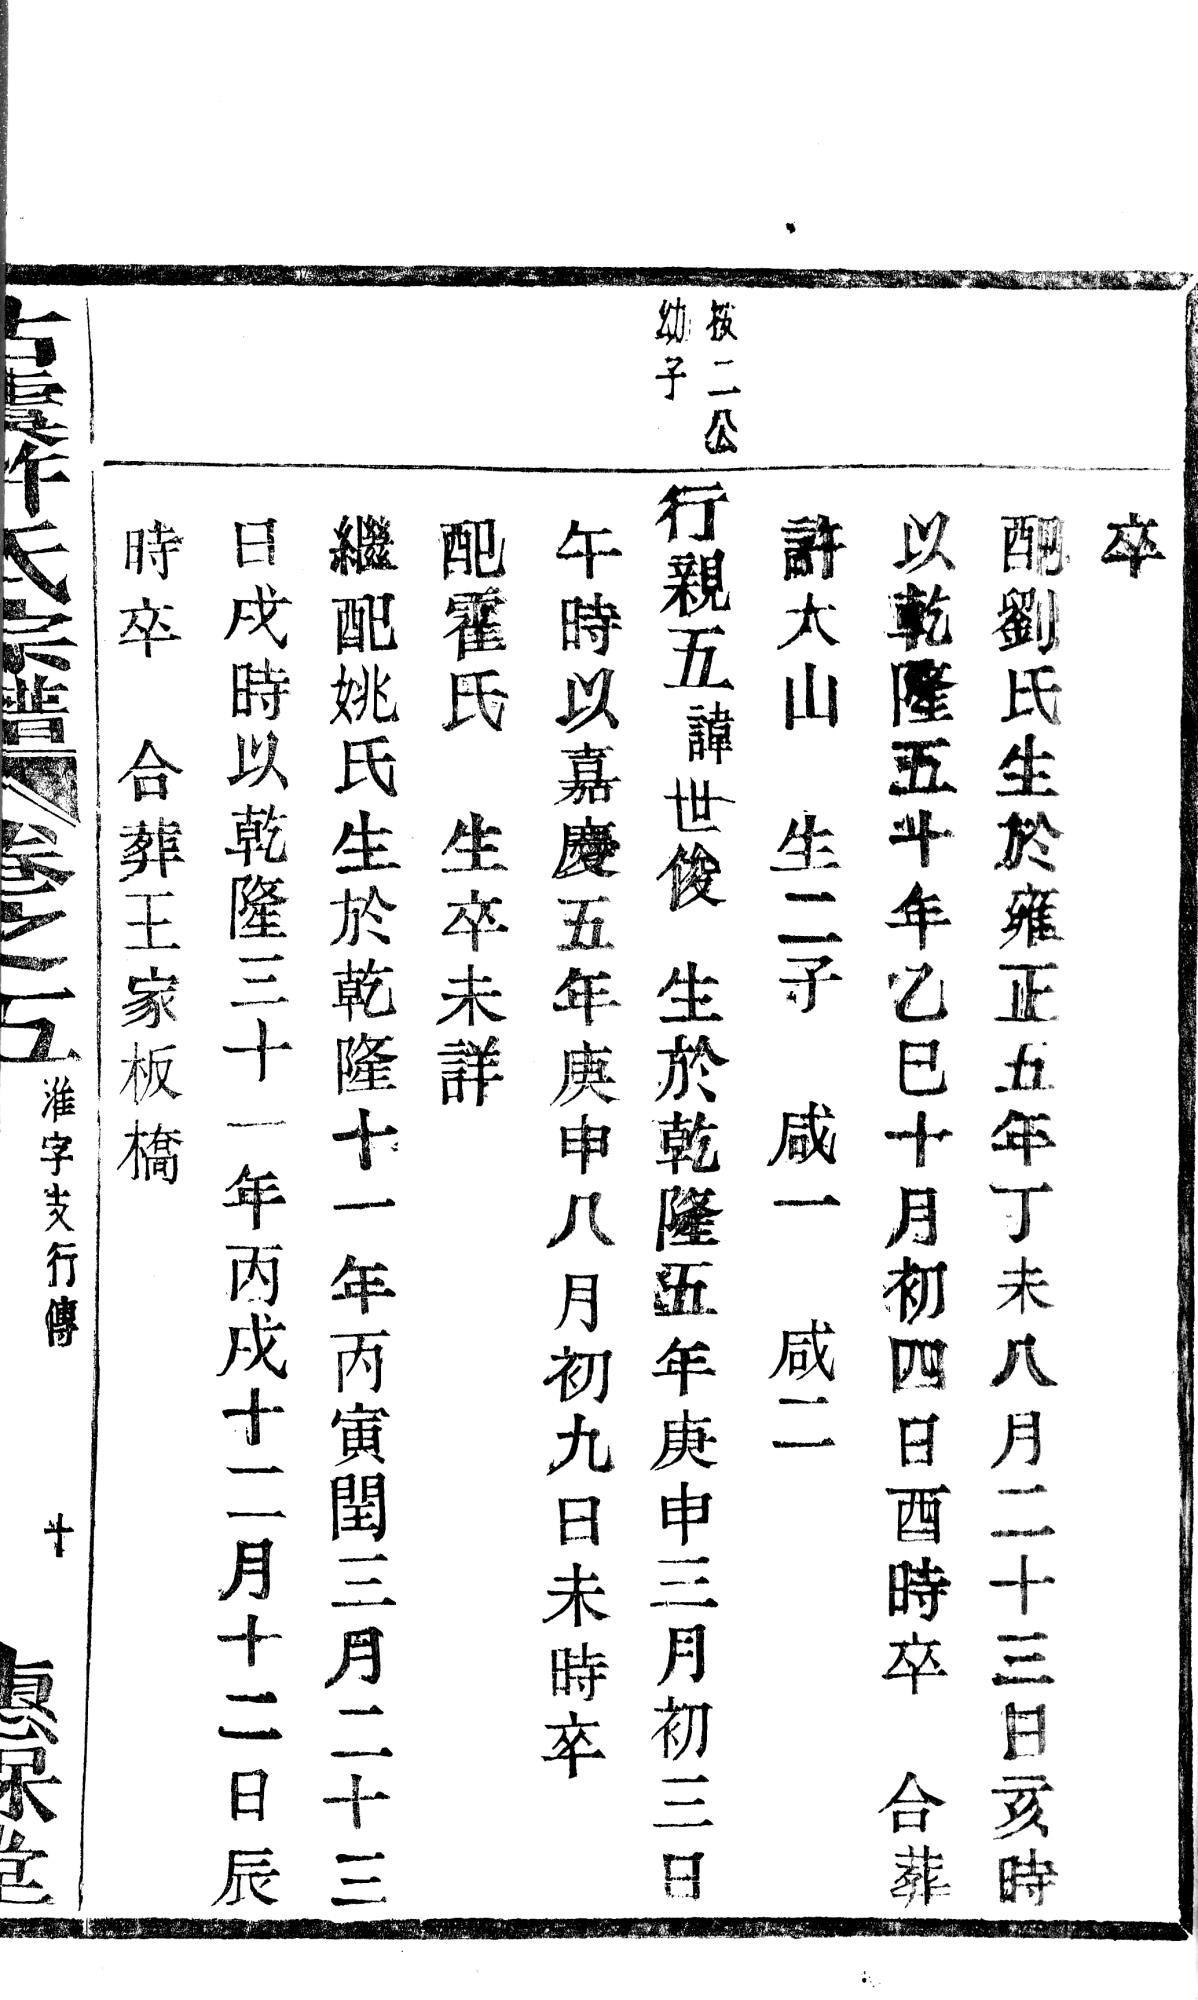 卒
配劉氏生於雍正五年丁未八月二十三日亥時
以乾隆五十年乙巳十月初四日酉時卒　合葬
許大山　生二子　咸一　咸二
按二公
幼子
行親五諱世俊　生於乾隆五年庚申三月初三日
午時以嘉慶五年庚申八月初九日未時卒
配霍氏　生卒未詳
繼配姚氏生於乾隆十一年丙寅閏三月二十三
日戌時以乾隆三十一年丙戌十二月十二日辰
時卒　合葬王家板橋
古虞許氏宗譜　卷之五　淮字支行傳　十　惠保堂